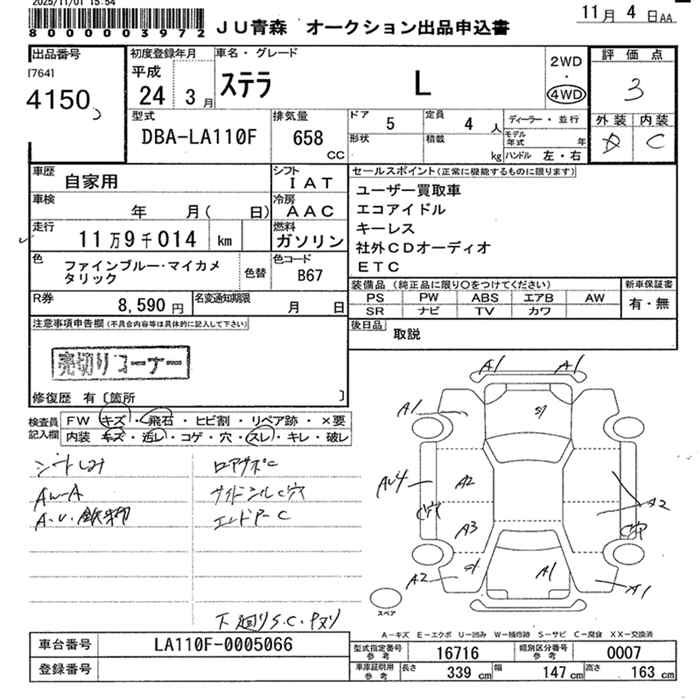 2025/11/01 15:54
8000003972
JU青森 オークション出品申込書
11月 4日AA
出品番号
[764]
4150
初度登録年月
平成
24 3月
車名・グレード
ステラ L
2WD
・
4WD
評価点
3
外装 内装
D C
型式
DBA-LA110F
排気量
658
CC
ドア 5
定員 4人
形状
積載 kg
ディーラー・並行
モデル年式 年
ハンドル 左・右
車歴
自家用
シフト
IAT
車検
年 月( 日)
冷房
AAC
走行
11万9千014 km
燃料
ガソリン
色
ファインブルー・マイカメタリック
色替
色コード
B67
R券
8,590円
名変通知期限
月 日
セールスポイント(正常に機能するものに限ります)
ユーザー買取車
エコアイドル
キーレス
社外CDオーディオ
ETC
装備品 (純正品に限り○をつけてください)
PS PW ABS エアB AW
SR ナビ TV カワ
新車保証書
有・無
後日品
取説
注意事項申告欄(不具合内容等は具体的に記入して下さい)
売切りコーナー
修復歴 有〔箇所 〕
検査員記入欄
FW キズ・飛石・ヒビ割・リペア跡・×要
内装 キズ・汚レ・コゲ・穴・スレ・キレ・破レ
シートしみ
AW-A
ロアサポC
サイドシルC穴
エンドP-C
下廻りS.C.Pヌリ
A1 A1
A1
S1
AU4
C穴
A2
A3
A2
C穴
A2
S1
A1
A1
スペア
A-キズ E-エクボ U-凹み W-補修跡 S-サビ C-腐食 XX-交換済
車台番号
LA110F-0005066
登録番号
型式指定番号参考
16716
類別区分番号参考
0007
車庫証明用参考
長さ 339 cm
幅 147 cm
高さ 163 cm